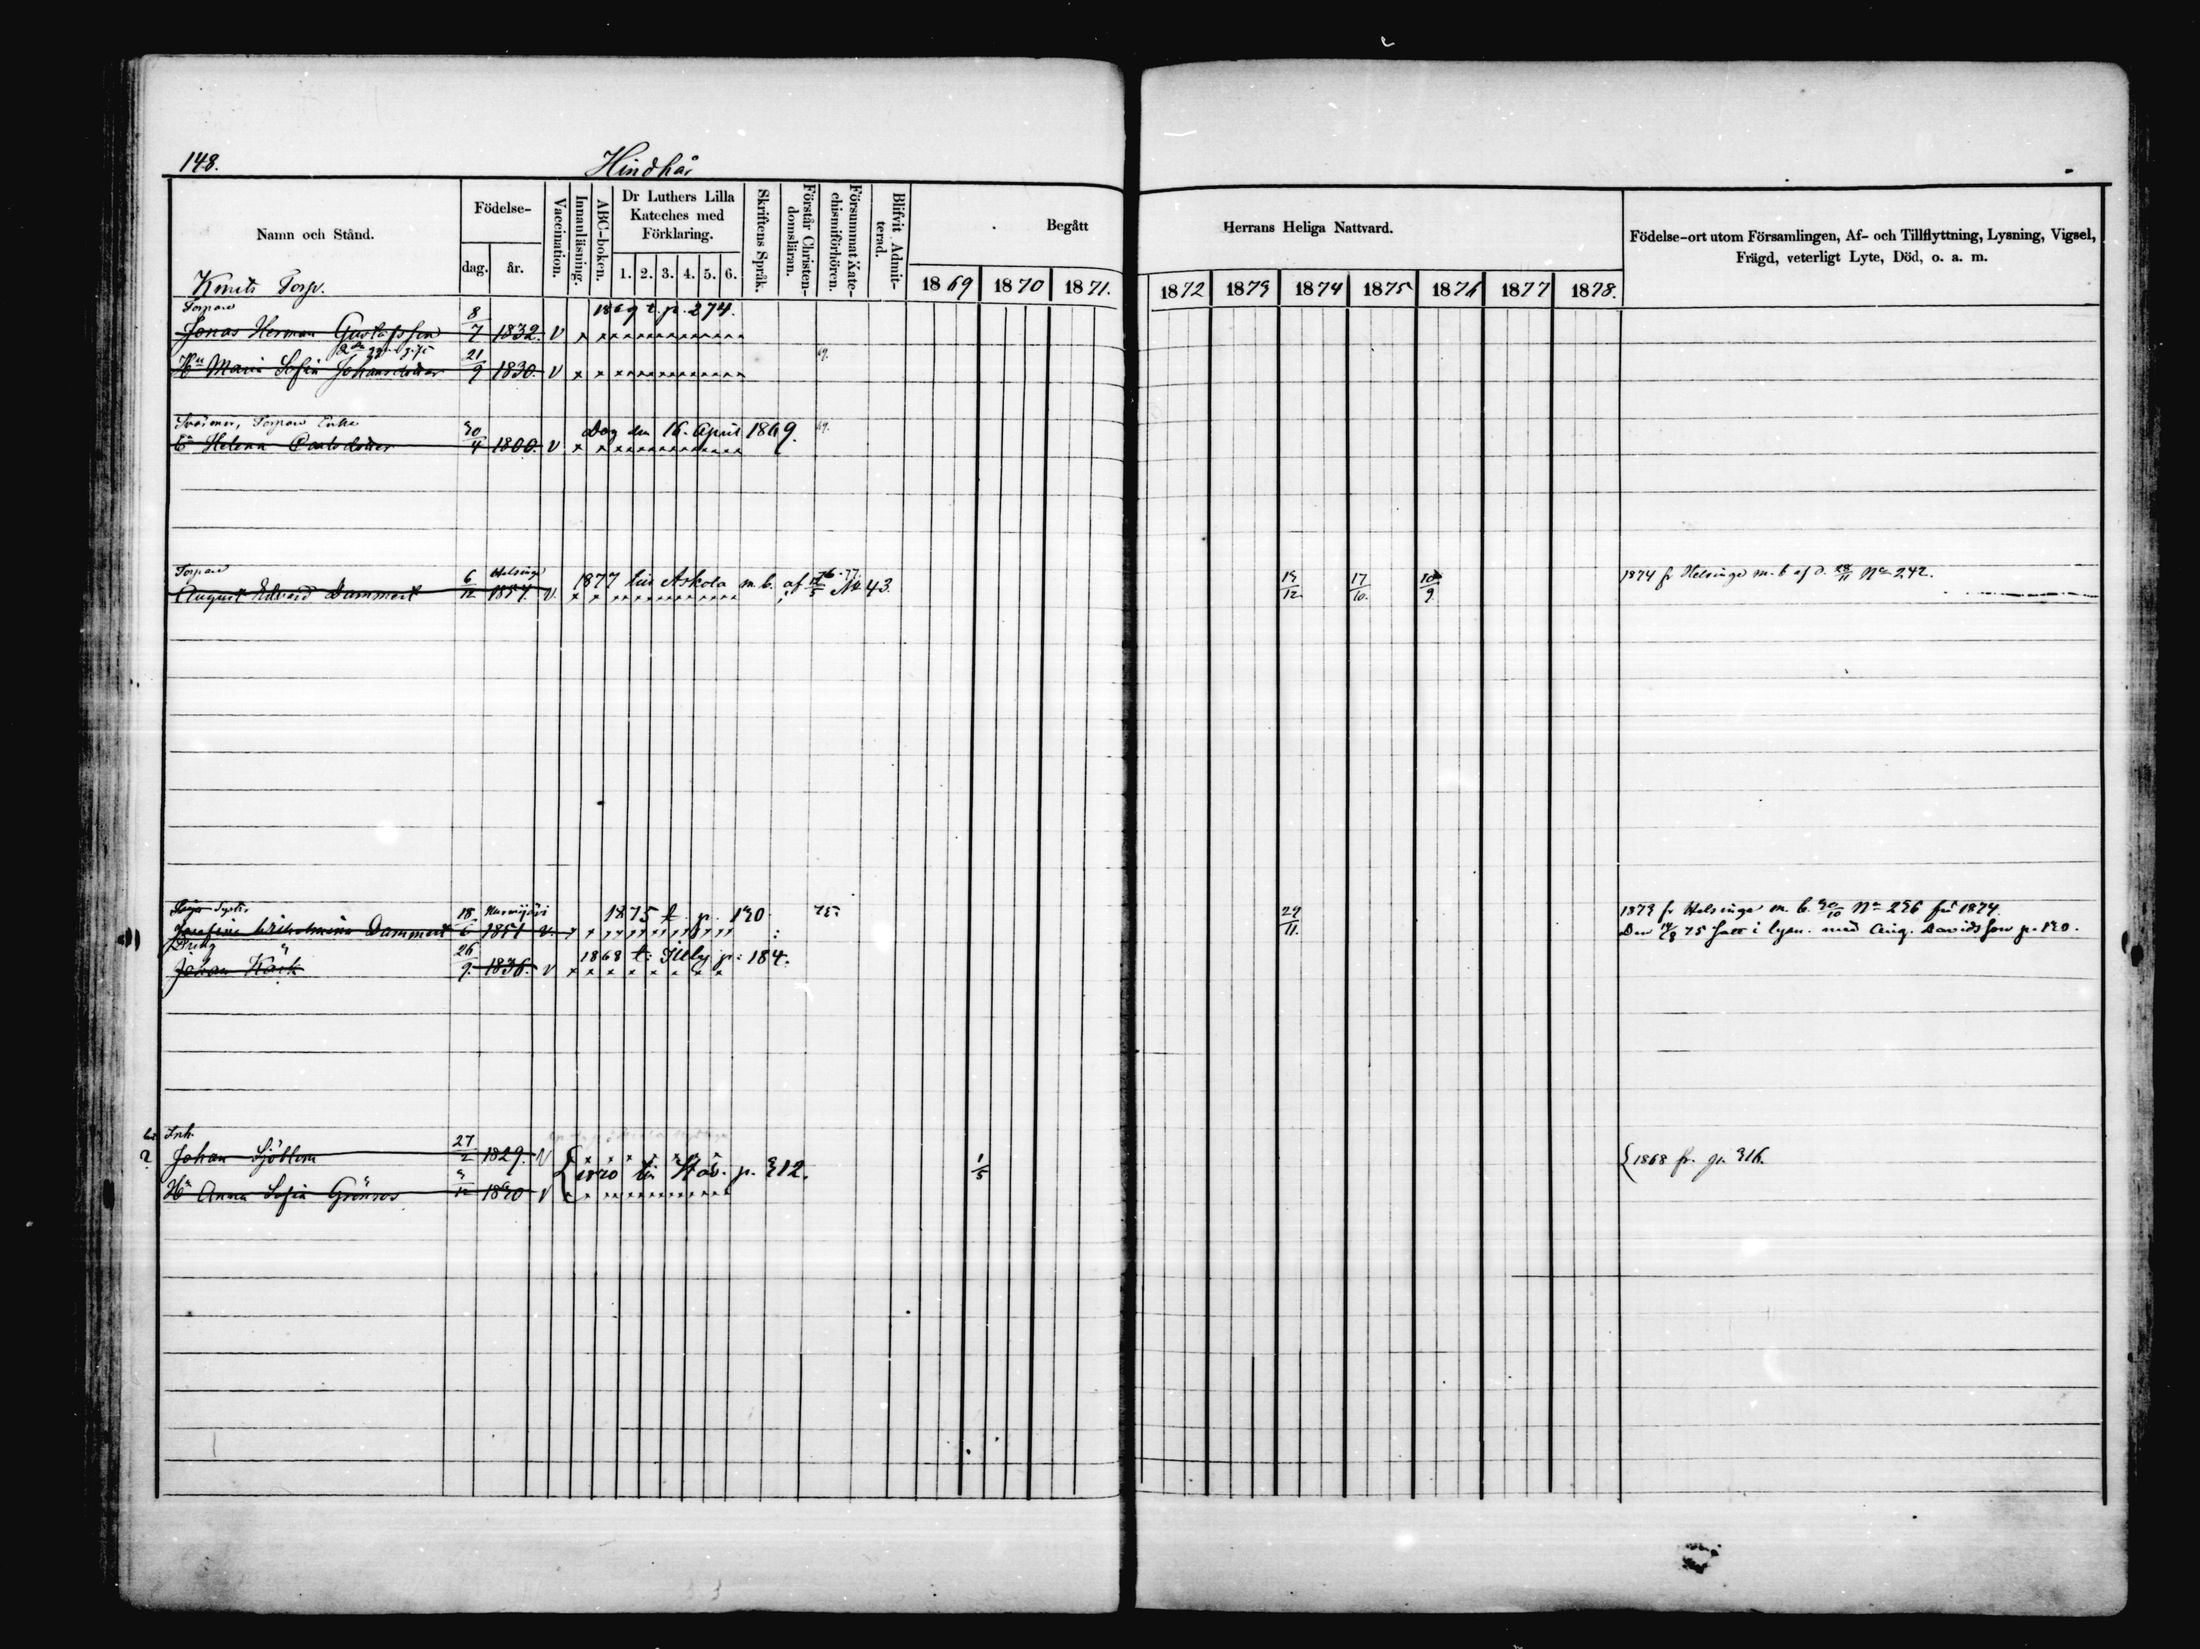 148. Hindhår
Namn och Stånd. Födelse- dag. år. Vaccination. Innanläsning. ABC-boken. Dr Luthers Lilla Kateches med Förklaring. 1. 2. 3. 4. 5. 6. Skriftens Språk. Förstår Christendomsläran. Försummat Katechismiförhören. Blifvit Admitterad. Begått Herrans Heliga Nattvard. Födelse-ort utom Församlingen, Af- och Tillflyttning, Lysning, Vigsel, Frägd, veterligt Lyte, Död, o. a. m.
1869 1870 1871. 1872 1873 1874 1875 1876 1877 1878.
Torp.
Torpare 8 1869 t. p. 274.
Jonas Herman Gustafsson 7 1832. v
Hu Maria Sofia Johansdotter 21/9 1830. v 69.
Torpare Enka 30 Dog den 16. April 1869. 69.
Helena 4 1800. v
Torpare 6 Helsinge 1877 till Askola m. b. af 12/5 No 43. 76. 77. 19/12 17/10. 10/9 1874 fr Helsinge m. b af d. 28/11 No 242.
August Edvard Dammert 12 1854. v.
Syster 18 Nurmijärvi 1875 t. p. 130. 75. 29/11. 1873 fr Helsinge m. b. 30/10 No 256 för 1874.
Josefina Wilhelmina Dammert 6 1851 v. Den 75 satt i lysn. med Aug. Davidsson p. 130.
Dreng 26 1868 t. p. 184.
Johan Käck 9. 1836. v
Inh. 27
Johan Sjöblom 2 1829. v 1870 till p. 312. 1/5 1868 fr. p. 316.
Hu Anna Sofia Grönroos 3/12 1830 v